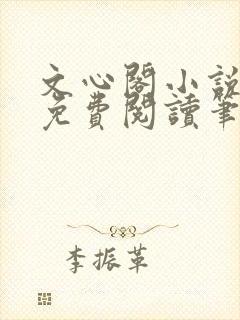 文心閣小說
免費閱讀筆
李振革